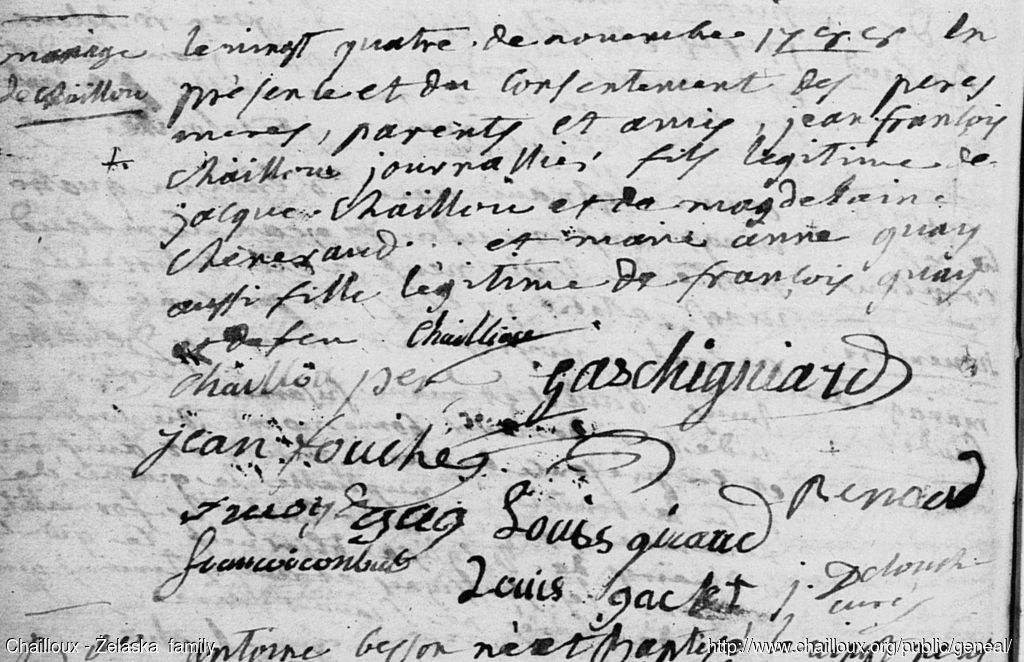 mariage
de chaillou
le vingt quatre de novembre 17 en
présence et du consentement des peres
meres, parents et amis, jean françois
chaillou journallier fils légitime de
jacque chaillou et de magdelaine
et marie anne quay
aussi fille légitime de françois quay
et de feu
chaillou pere gaschigniard
jean fouches
Renaud
gay Louis giraud
Louis gachet j. Delouche
curé
antoine besson né et baptisé le
Chailloux - Żelaska family
http://www.chailloux.org/public/geneal/